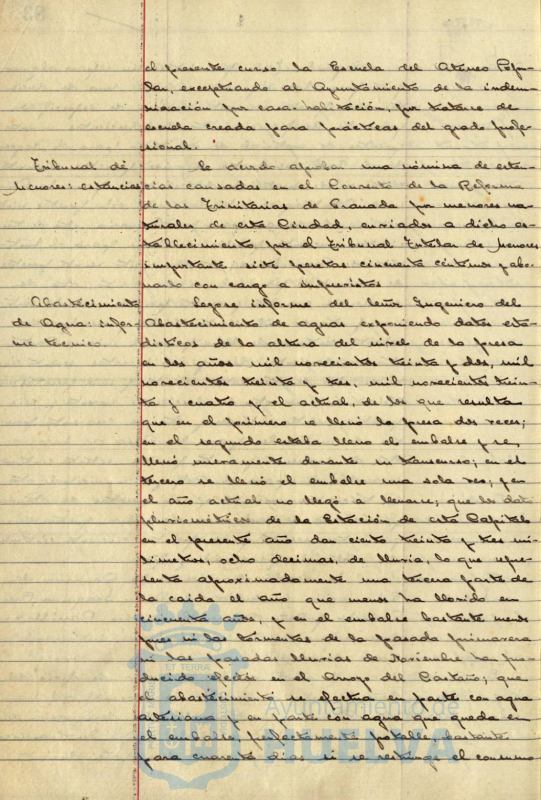 el presente curso la Escuela del Ateneo Popu-
lar, exceptuando al Ayuntamiento de la indem-
nización por casa-habitación, por tratarse de
escuela creada para prácticas del grado profe-
sional.
Tribunal de
Menores: estancias
Se acordó aprobar una nómina de estan-
cias causadas en el Convento de la Reforma
de las Trinitarias de Granada por menores na-
turales de esta Ciudad, enviados a dicho es-
tablecimiento por el Tribunal Tutelar de Menores
importante siete pesetas cincuenta céntimos y abo-
narlo con cargo a imprevistos
Abastecimiento
de Agua: infor-
me técnico.
Leyose informe del Señor Ingeniero del
Abastecimiento de aguas exponiendo datos esta-
dísticos de la altura del nivel de la presa
en los años mil novecientos treinta y dos, mil
novecientos treinta y tres, mil novecientos trein-
ta y cuatro y el actual, de los que resulta
que en el primero se llenó la presa dos veces;
en el segundo estaba lleno el embalse y se
llenó nuevamente durante su transcurso; en el
tercero se llenó el embalse una sola vez; y en
el año actual no llegó a llenarse; que los datos
pluviométricos de la Estación de esta Capital
en el presente año dan ciento treinta y tres mi-
límetros, ocho décimas, de lluvia, lo que repre-
senta aproximadamente una tercera parte de
la caída el año que menos ha llovido en
cincuenta años, y en el embalse bastante menos
pues ni las tormentas de la pasada primavera
ni las pasadas lluvias de Noviembre han pro-
ducido efectos en el Arroyo del Castaño; que
el abastecimiento se efectúa en parte con agua
artesiana y en parte con agua que queda en
el embalse, perfectamente potable, bastante
para cuarenta días si se restringe el consumo
ET TERRA
Ayuntamiento de
HUELVA